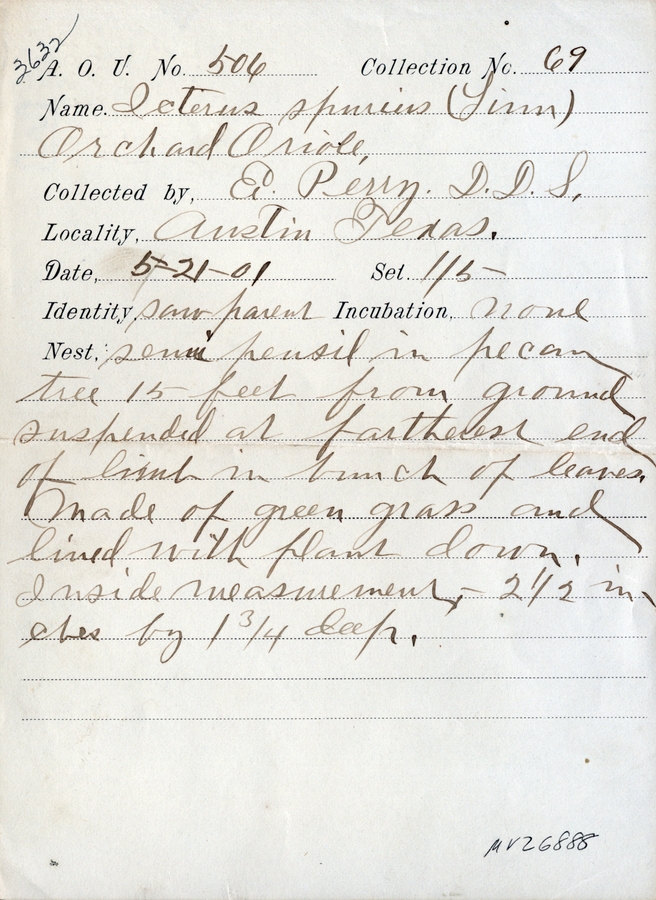 3632
A. O. U. No. 506 Collection No. 69
Name. Icterus spurius (Linn)
Orchard Oriole,
Collected by, E. Perry. D.D.S.
Locality, Austin Texas.
Date, 5-21-01 Set. 1/5-
Identity, saw parent Incubation, none
Nest, semi pensil in pecan
tree 15 feet from ground
suspended at fartherest end
of limb in bunch of leaves.
Made of green grass and
lined with plant down.
Inside measurement, - 2 1/2 in-
ches by 1 3/4 deep.
MV26888